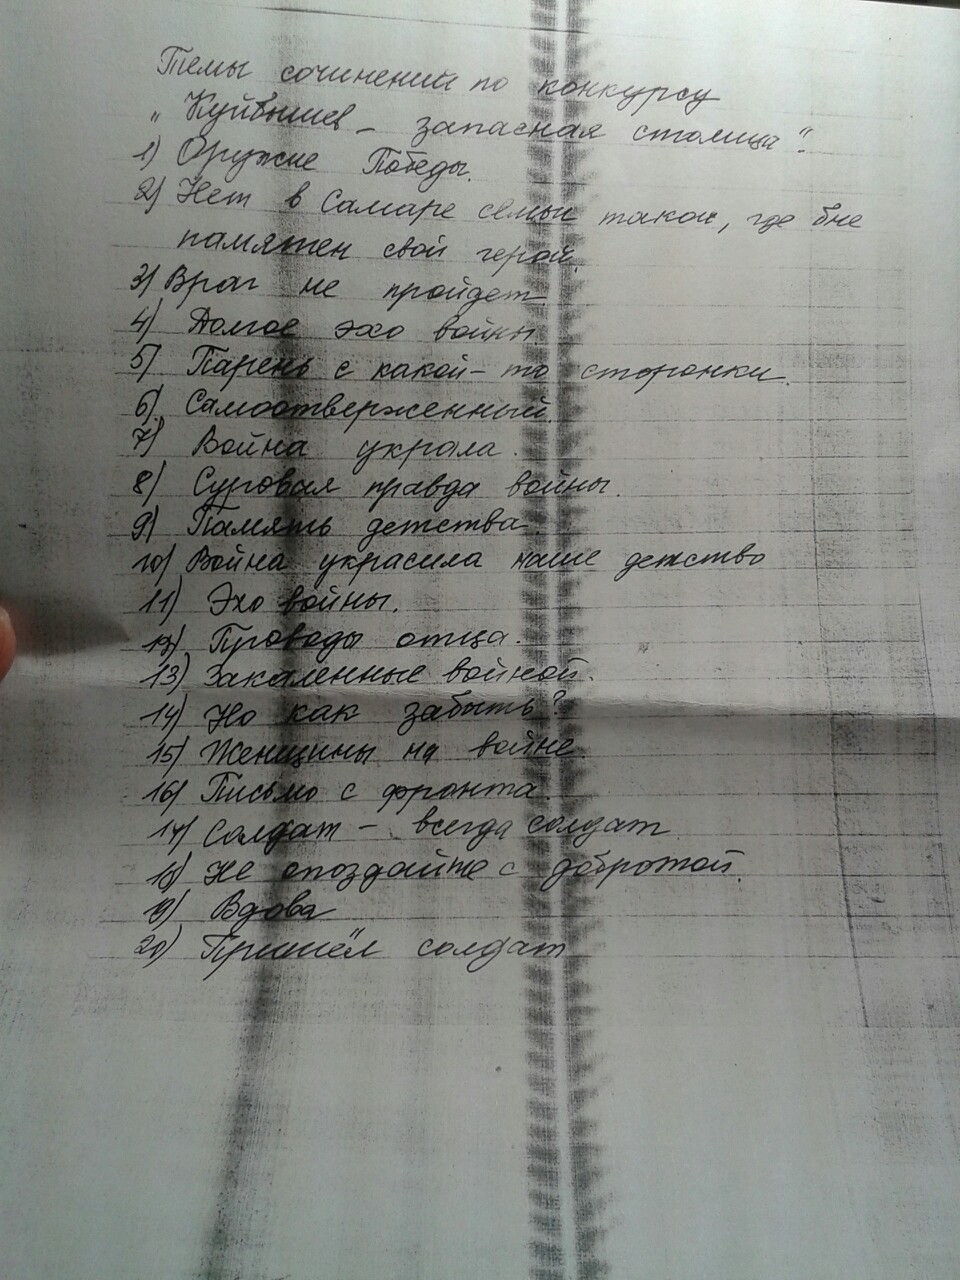 Темы сочинений по конкурсу
"Куйбышев - запасная столица".
1) Оружие Победы.
2) Нет в Самаре семьи такой, где б не
памятен свой герой.
3) Враг не пройдет
4) Долгое эхо войны.
5) Парень с какой-то сторонки.
6) Самоотверженный.
7) Война украла.
8) Суровая правда войны.
9) Память детства
10) Война украсила наше детство
11) Эхо войны.
12) Проводы отца.
13) Закаленные войной.
14) Но как забыть?
15) Женщины на войне.
16) Письмо с фронта.
17) Солдат - всегда солдат
18) Не опоздайте с добротой.
19) Вдова
20) Пришёл солдат